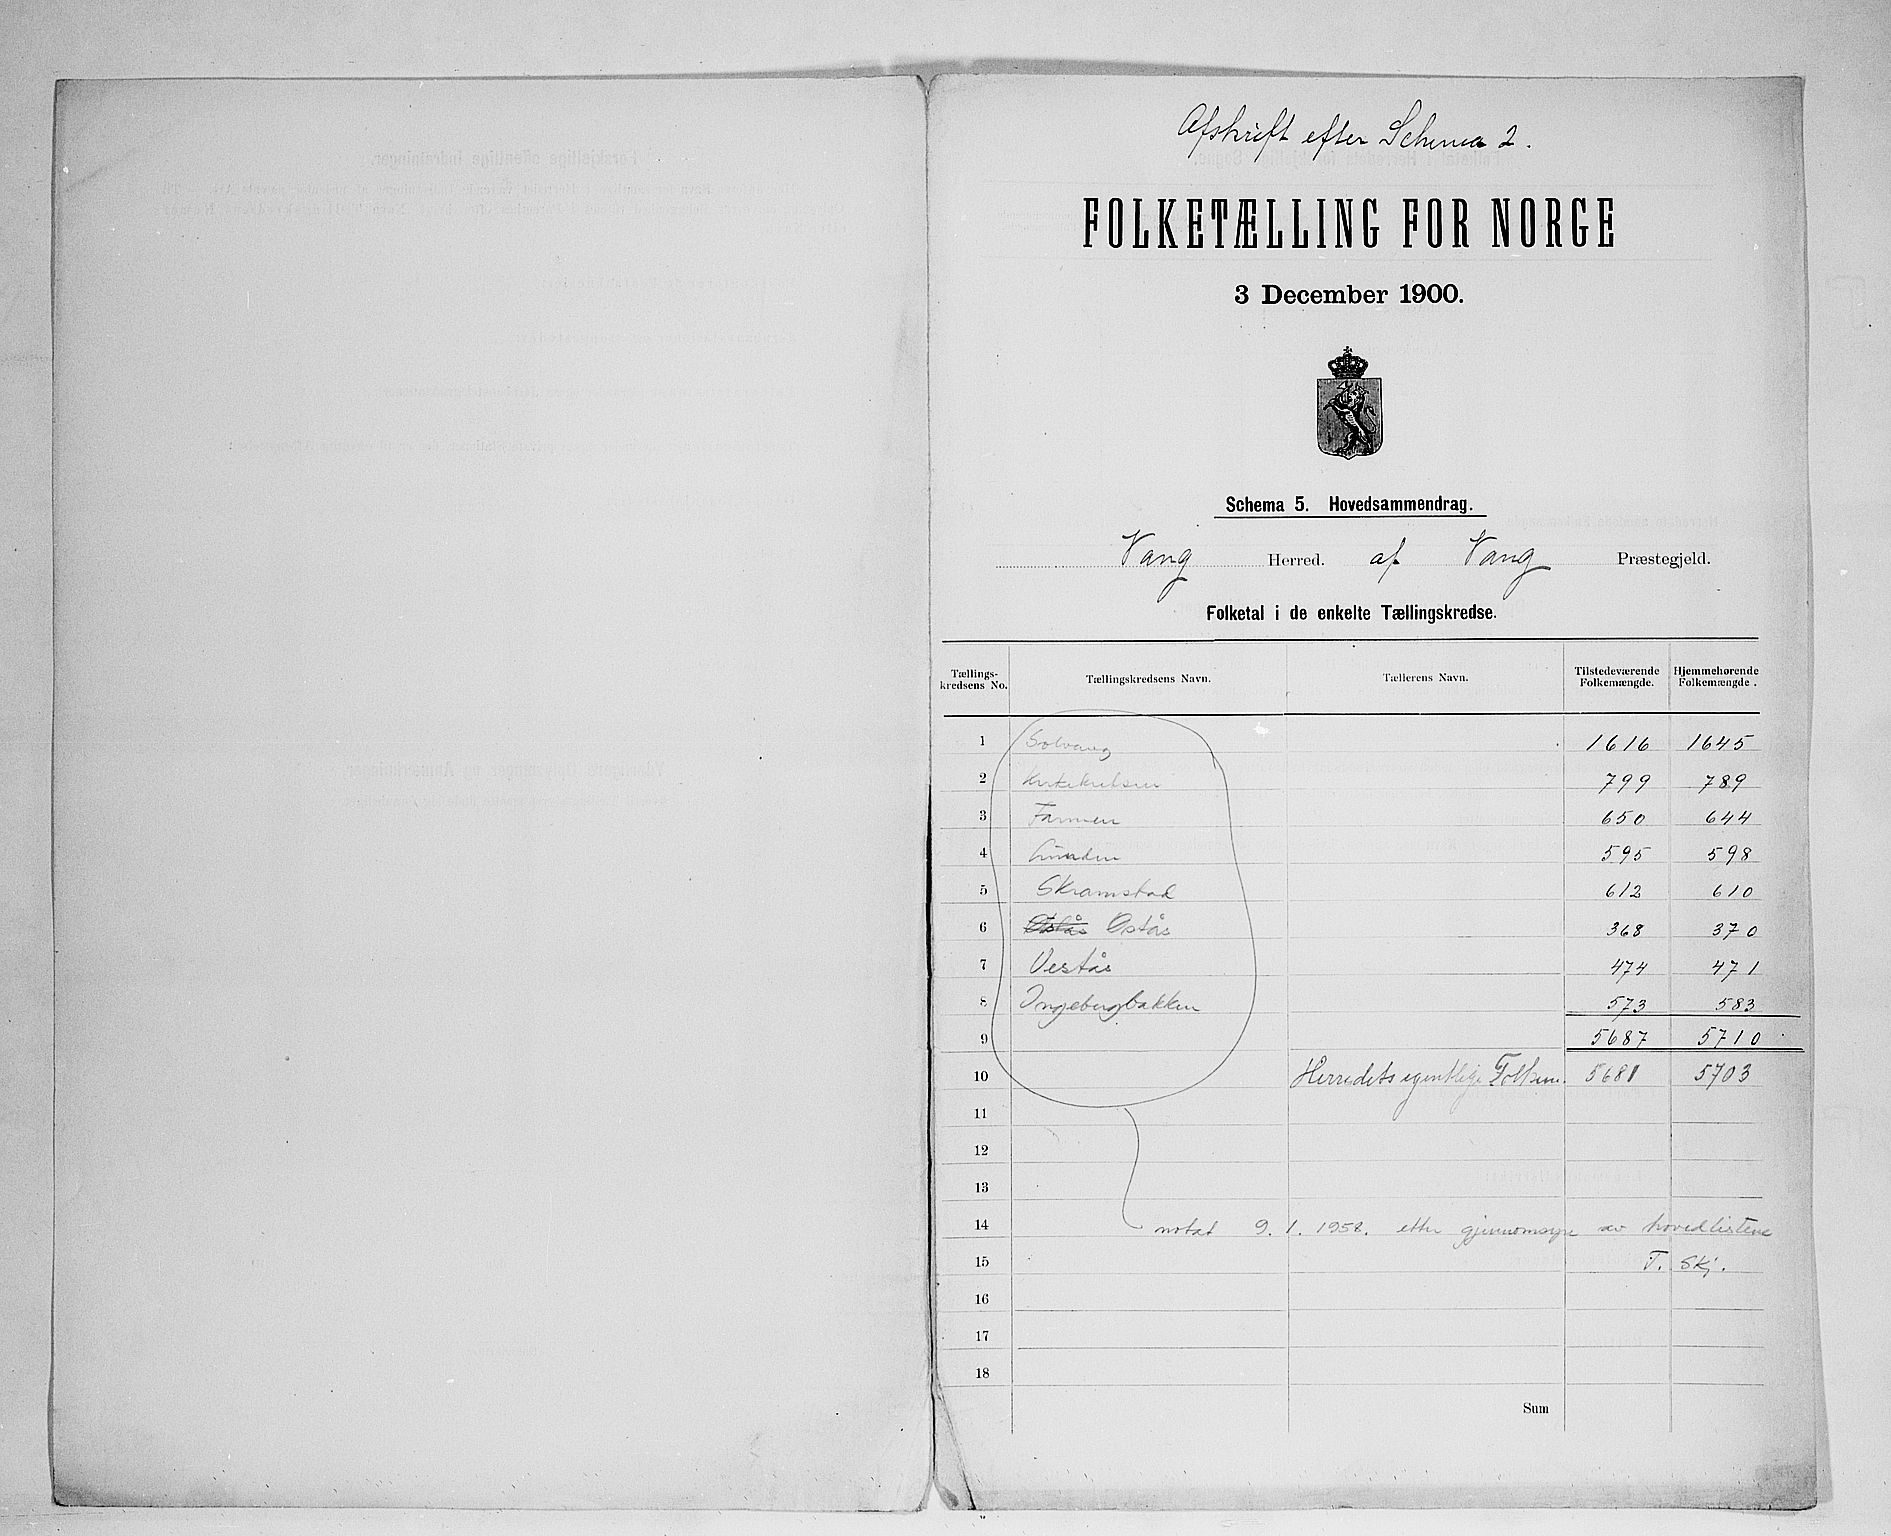 Afskrift efter Schema 2.
FOLKETÆLLING FOR NORGE
3 December 1900.
Schema 5. Hovedsammendrag.
Vang Herred. af Vang Præstegjeld.
Folketal i de enkelte Tællingskredse.
Tællings-kredsens No. Tællingskredsens Navn. Tællerens Navn. Tilstedeværende Folkemængde. Hjemmehørende Folkemængde.
1 Solvang 1616 1645
2 799 789
3 Farmen 650 644
4 595 598
5 Skramstad 612 610
6 Østås Østås 368 370
7 Vestås 474 471
8 Ingebergbakken 573 583
9 5687 5710
10 Herredets egentlige Folkem. 5681 5703
11
12
13
14 notat 9.1.1958. etter gjennomsyn av hovedlistene
15 T. Skj.
16
17
18
Sum